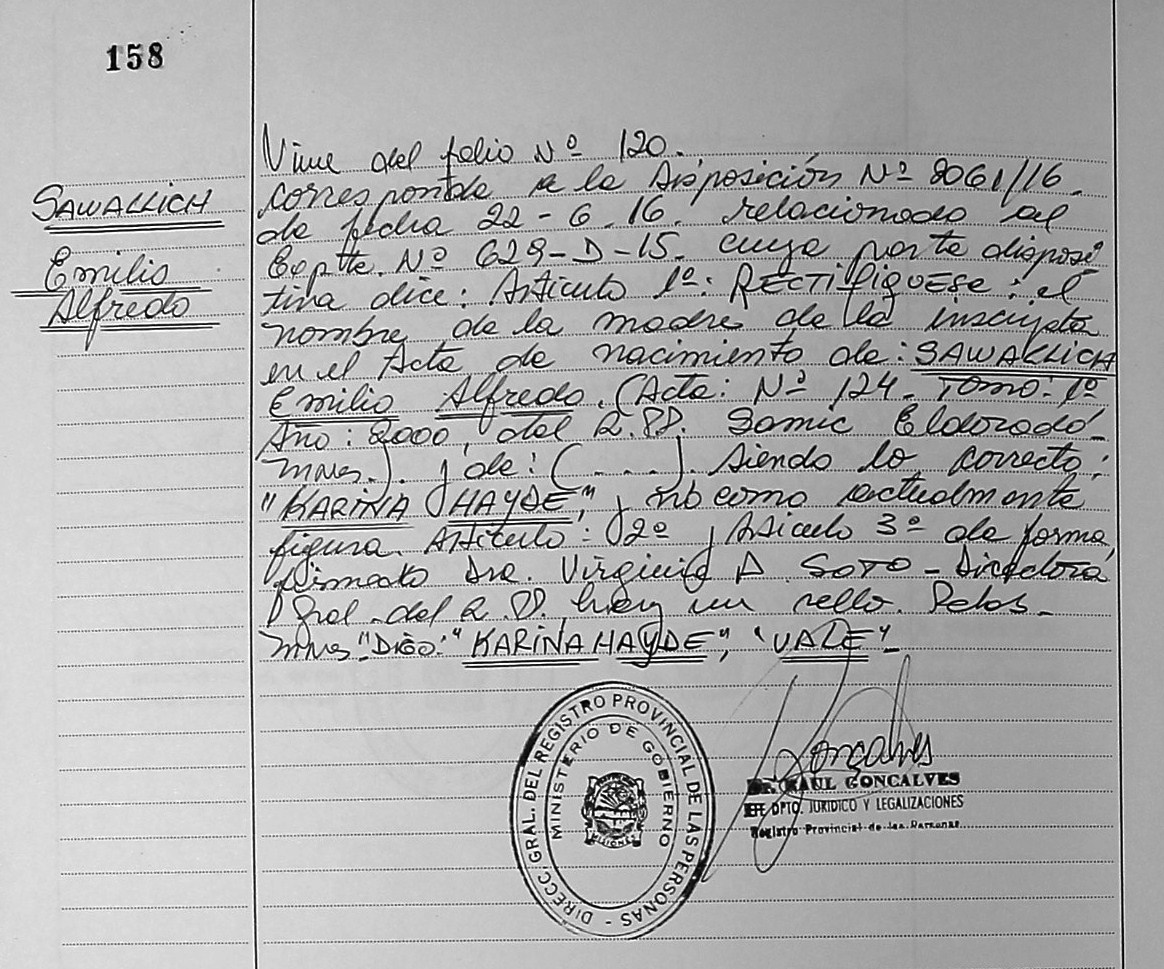 158
SAWALLICH
Emilio
Alfredo
Viene del folio Nº 120.
corresponde a la Disposición Nº 2061/16.
de fecha 22-6.16. relacionado al
Expte. Nº 629-D-15. cuya parte disposi
tiva dice: Articulo 1º: RECTIFIQUESE: el
nombre de la madre de la inscripta
en el Acta de nacimiento de: SAWALLICH
Emilio Alfredo. (Acta: Nº 124. Tomo: 1º
Año: 2000, del R.PP. Samic Eldorado-
Mnes.). y de: (....). siendo lo correcto:
"KARINA HAYDE", y no como actualmente
figura. Articulo: 2º y Articulo 3º de forma,
Firmado Dra. Virginia A. SOTO - Directora
Gral. del R.PP. hay un sello. Pdas-
Mnes "Digo:" KARINA HAYDE", "VALE"-
DIRECC. GRAL. DEL REGISTRO PROVINCIAL DE LAS PERSONAS -
MINISTERIO DE GOBIERNO
MISIONES
Goncalves
DR. RAUL GONCALVES
JEFE DPTO. JURIDICO Y LEGALIZACIONES
Registro Provincial de las Personas